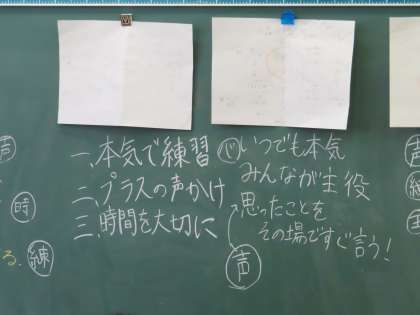 声
時
る。
練
一、本気で練習
二、プラスの声かけ
三、時間を大切に
いつでも本気
みんなが主役
思ったことを
その場ですぐ言う!
声